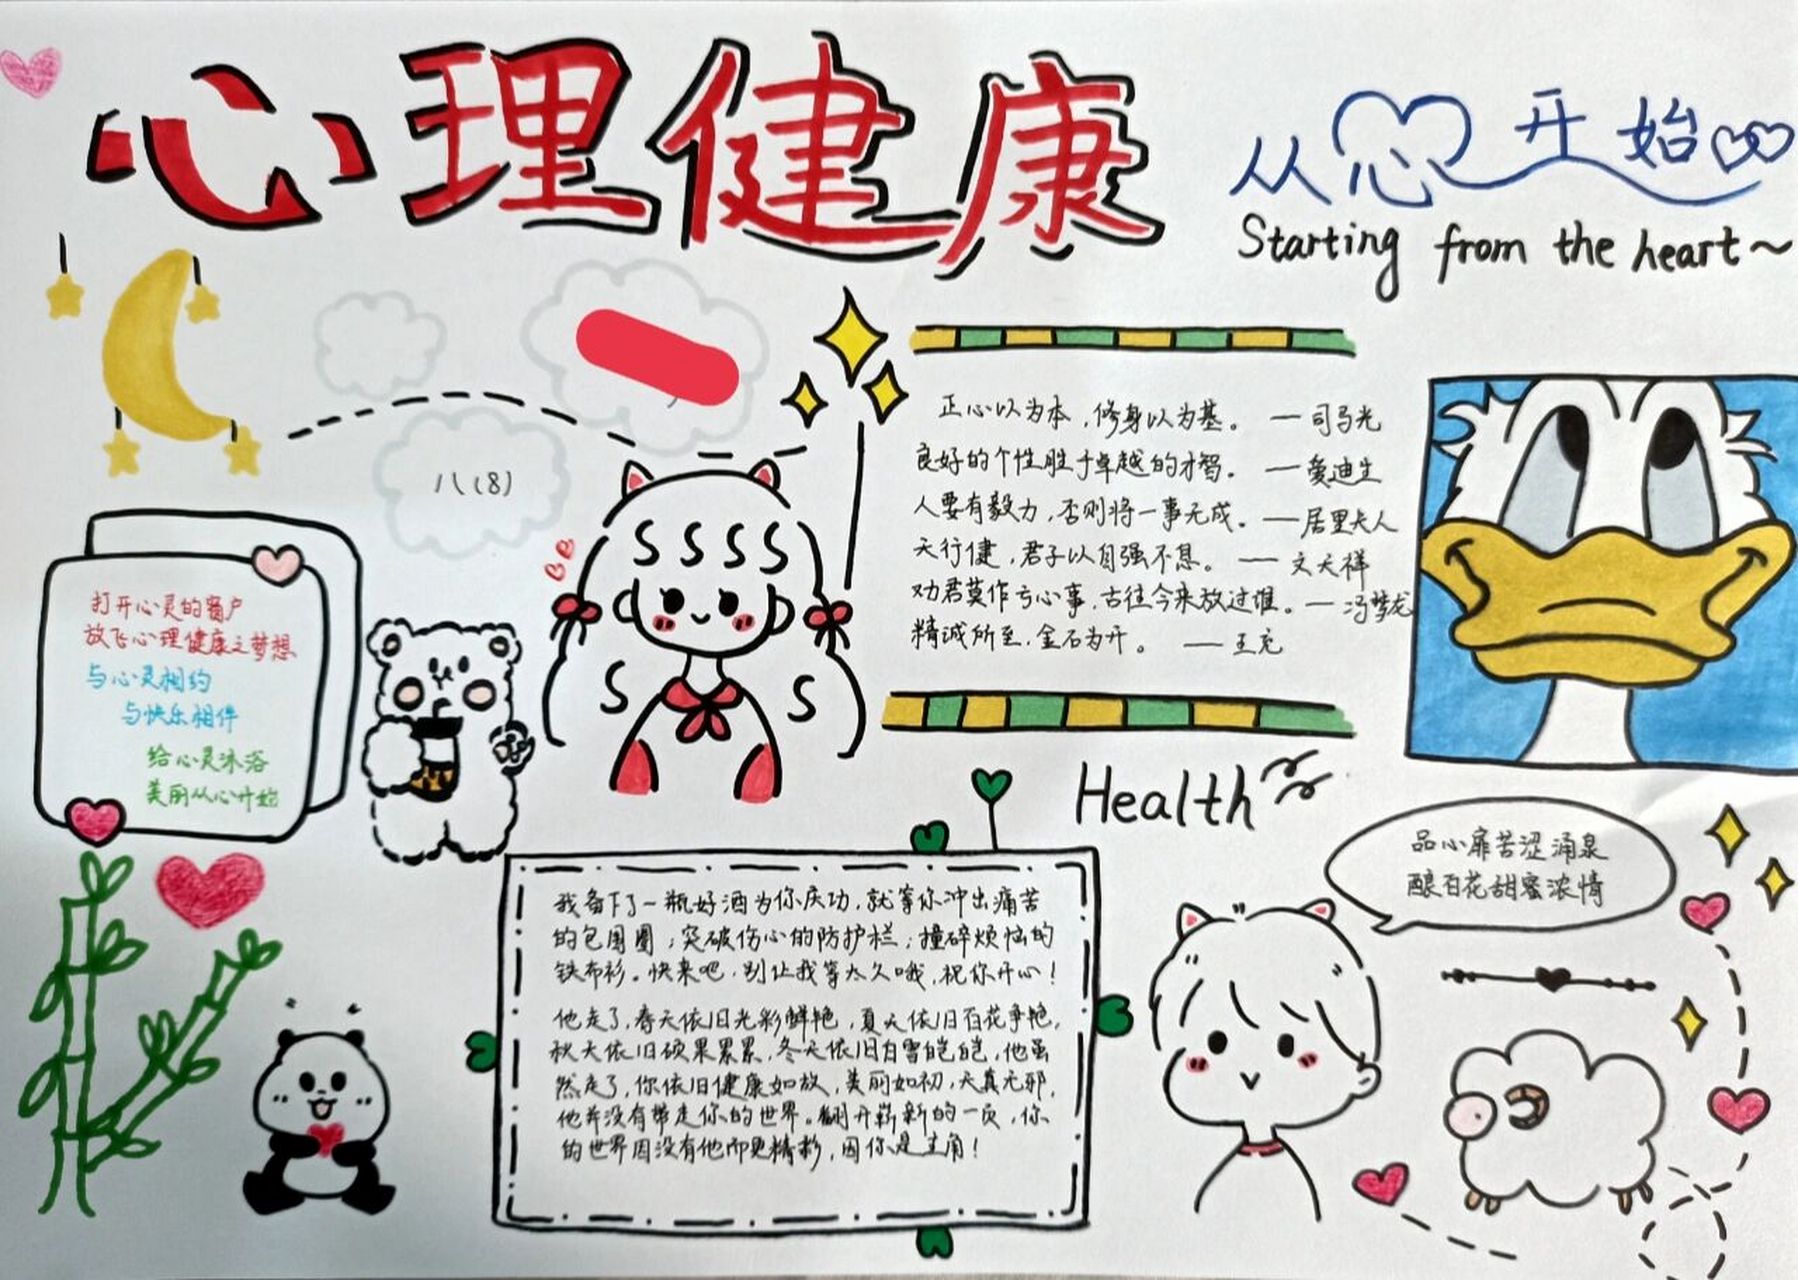 心理健康
从心开始
Starting from the heart~
八(8)
正心以为本，修身以为基。 —司马光
良好的个性胜于卓越的才智。 —爱迪生
人要有毅力，否则将一事无成。—居里夫人
天行健，君子以自强不息。 — 文天祥
劝君莫作亏心事，古往今来放过谁。—冯梦龙
精诚所至，金石为开。 —王充
打开心灵的窗户
放飞心理健康之梦想
与心灵相约
与快乐相伴
给心灵沐浴
美丽从心开始
Health
我备下了一瓶好酒为你庆功，就等你冲出痛苦
的包围圈；突破伤心的防护栏；撞碎烦恼的
铁布衫。快来吧，别让我等太久哦，祝你开心！
他走了，春天依旧光彩鲜艳，夏天依旧百花争艳，
秋天依旧硕果累累，冬天依旧白雪皑皑，他虽
然走了，你依旧健康如故，美丽如初，天真无邪，
他并没有带走你的世界。翻开崭新的一页，你
的世界因没有他而更精彩，因你是主角！
品心扉苦涩涌泉
酿百花甜蜜浓情